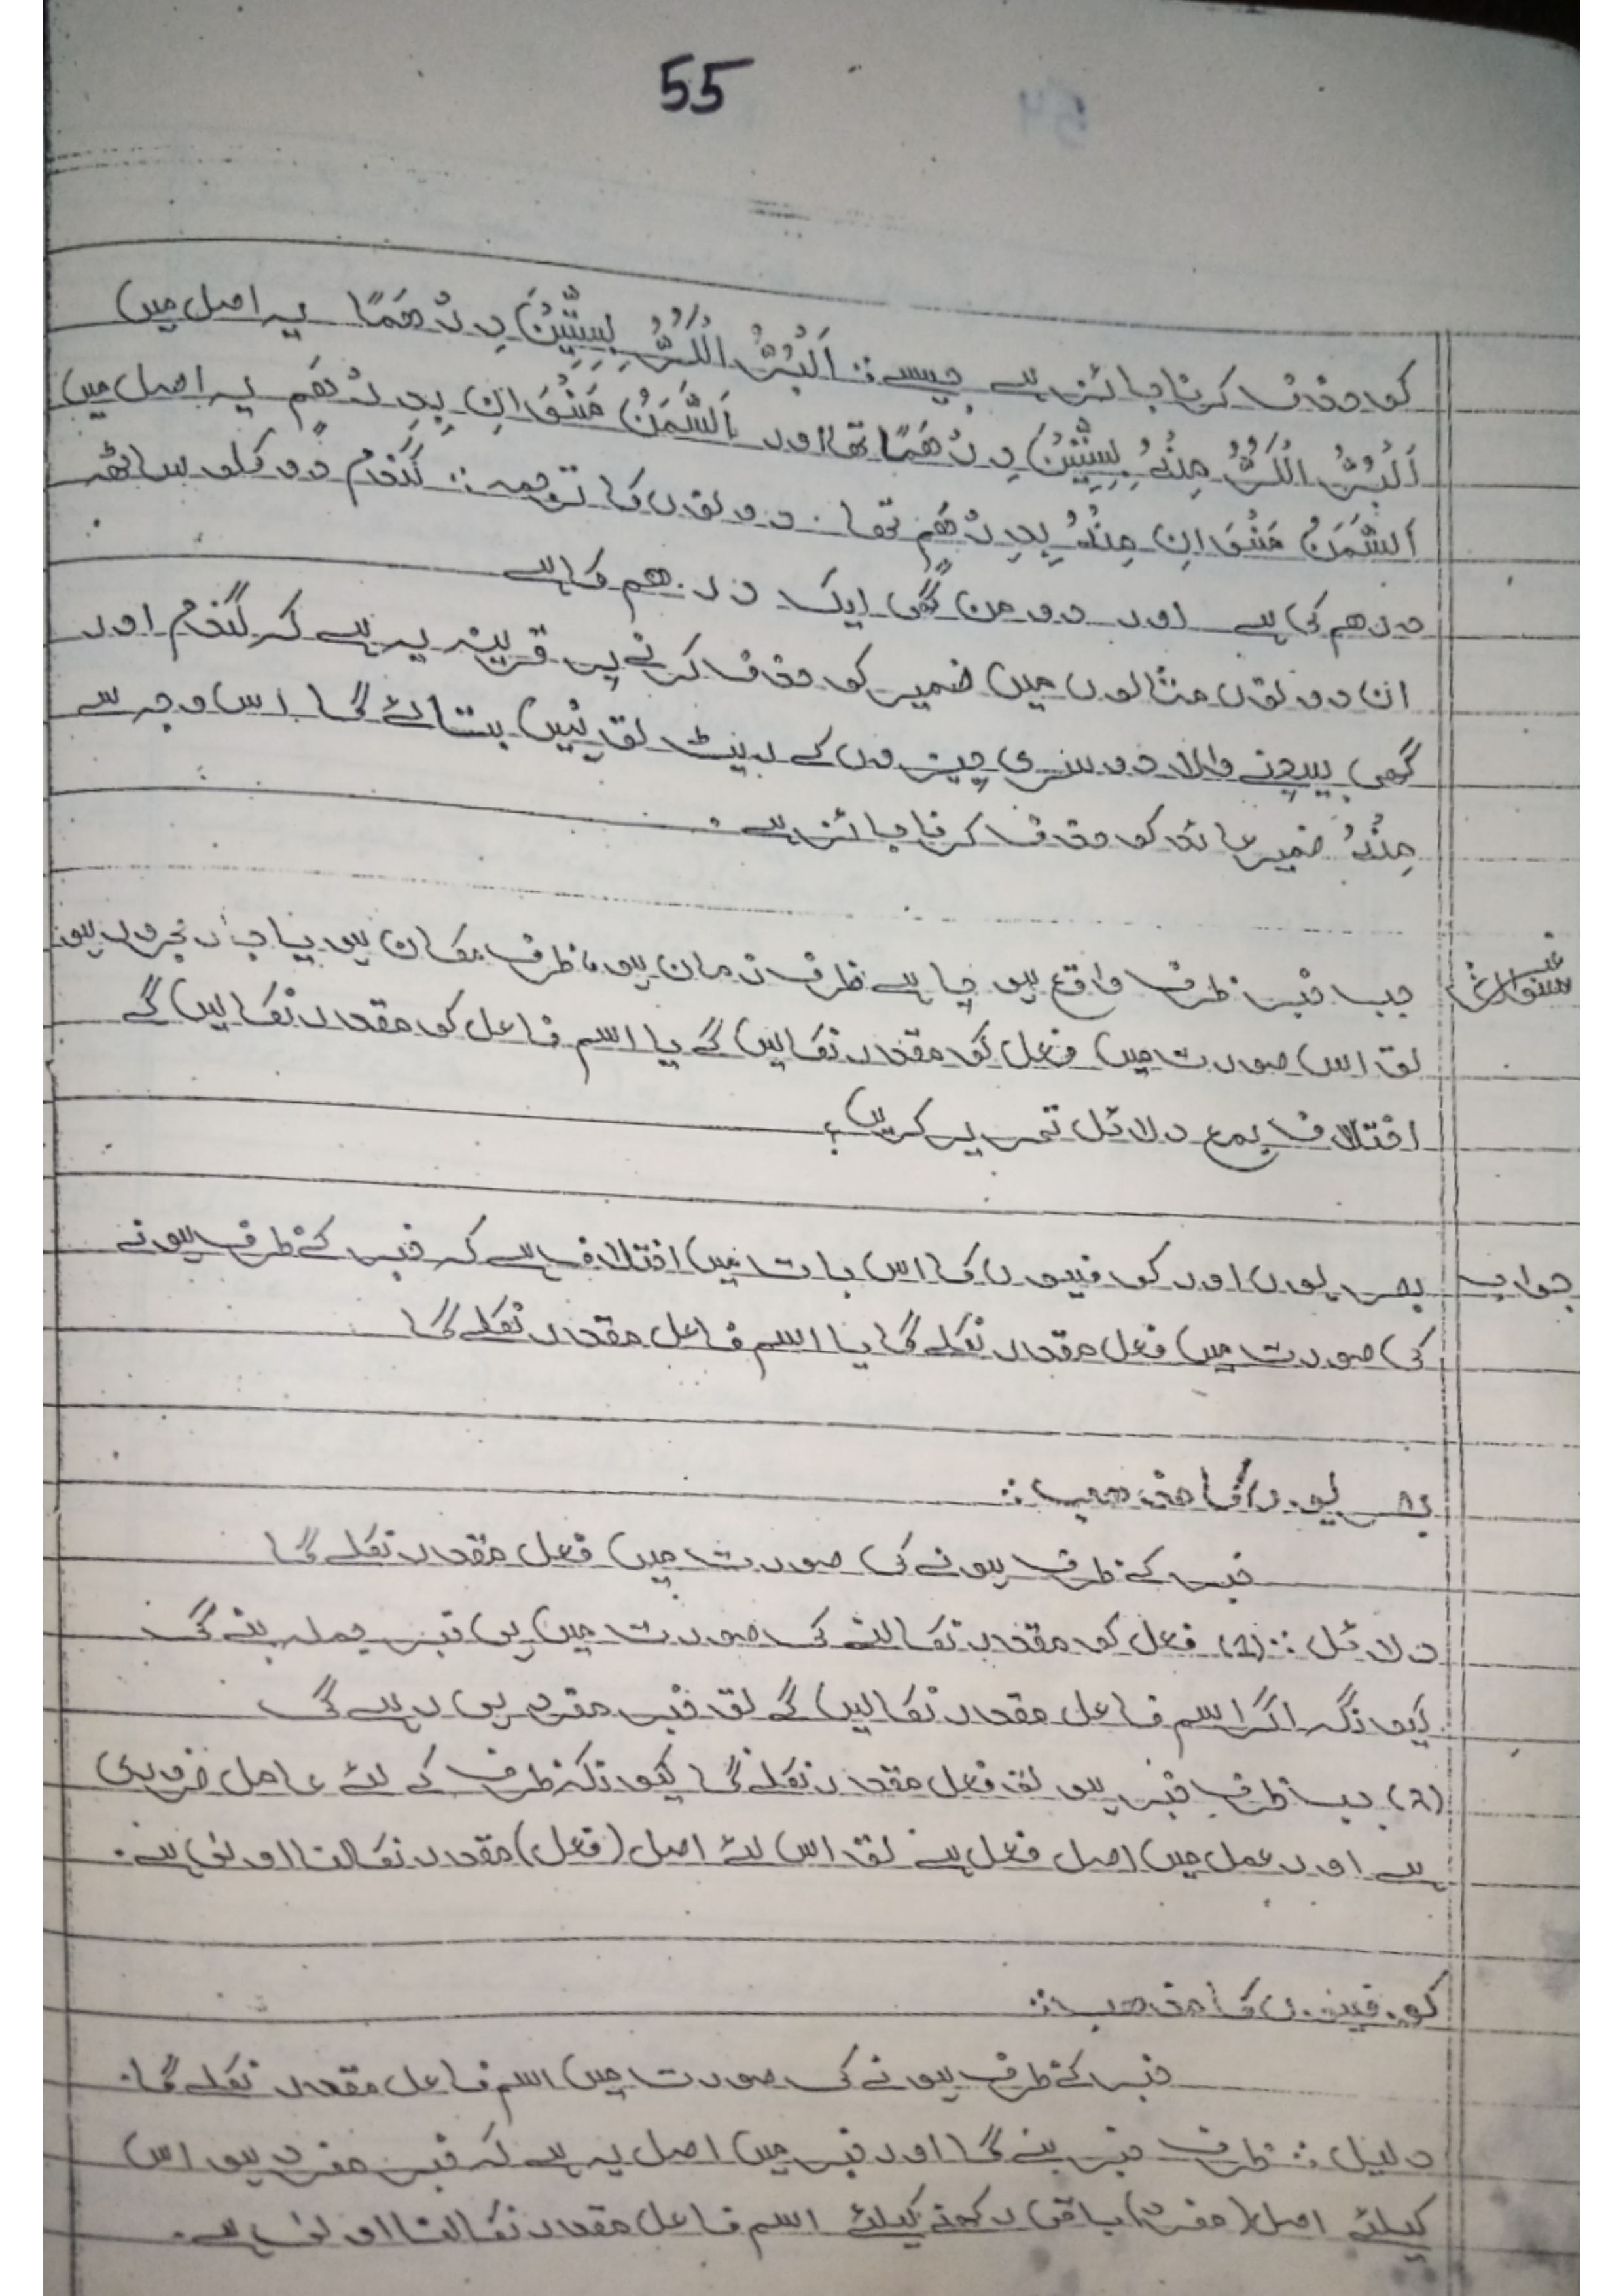 55
کو حذف کرنا جائز ہے جیسے :: اَلْبُرُّ الْکُرُّ بِسِتِّیْنَ دِرْھَمًا یہ اصل میں
اَلْبُرُّ الْکُرُّ مِنْہُ بِسِتِّیْنَ دِرْھَمًا تھا اور اَلسَّمَنُ مَنْوَانِ بِدِرْھَمٍ یہ اصل میں
اَلسَّمَنُ مَنْوَانِ مِنْہُ بِدِرْھَمٍ تھا۔ دونوں کا ترجمہ :: گندم دو کلو ساٹھ
درھم کی ہے اور دو من گھی ایک درھم کا ہے
ان دونوں مثالوں میں ضمیر کو حذف کرنے پر قرینہ یہ ہے کہ گندم اور
گھی بیچنے والا دوسری چیزوں کے ریٹ تو نہیں بتائے گا اس وجہ سے
مِنْہُ ضمیر عائد کو حذف کرنا جائز ہے۔
سوال جب خبر ظرف واقع ہو چاہے ظرف زمان ہو، ظرف مکان ہو یا جار مجرور ہو
تو اس صورت میں فعل کو مقدر نکالیں گے یا اسم فاعل کو مقدر نکالیں گے
اختلاف بمع دلائل تحریر کریں؟
جواب بصریوں اور کوفیوں کا اس بات میں اختلاف ہے کہ خبر کے ظرف ہونے
کی صورت میں فعل مقدر نکلے گا یا اسم فاعل مقدر نکلے گا
بصریوں کا مذھب ::
خبر کے ظرف ہونے کی صورت میں فعل مقدر نکلے گا
دلائل :: (1) فعل کو مقدر نکالنے کی صورت میں ہی خبر جملہ بنے گی
کیونکہ اگر اسم فاعل مقدر نکالیں گے تو خبر مفرد ہی رہے گی
(2) جب ظرف خبر ہو تو فعل مقدر نکلے گا کیونکہ ظرف کے لئے عامل ضروری
ہے اور عمل میں اصل فعل ہے تو اس لئے اصل (فعل) مقدر نکالنا اولی ہے۔
کوفیوں کا مذھب ::
خبر کے ظرف ہونے کی صورت میں اسم فاعل مقدر نکلے گا۔
دلیل :: ظرف خبر بنے گا اور خبر میں اصل یہ ہے کہ خبر مفرد ہو اس
کیلئے اصل (مفرد) باقی رکھنے کیلئے اسم فاعل مقدر نکالنا اولی ہے۔